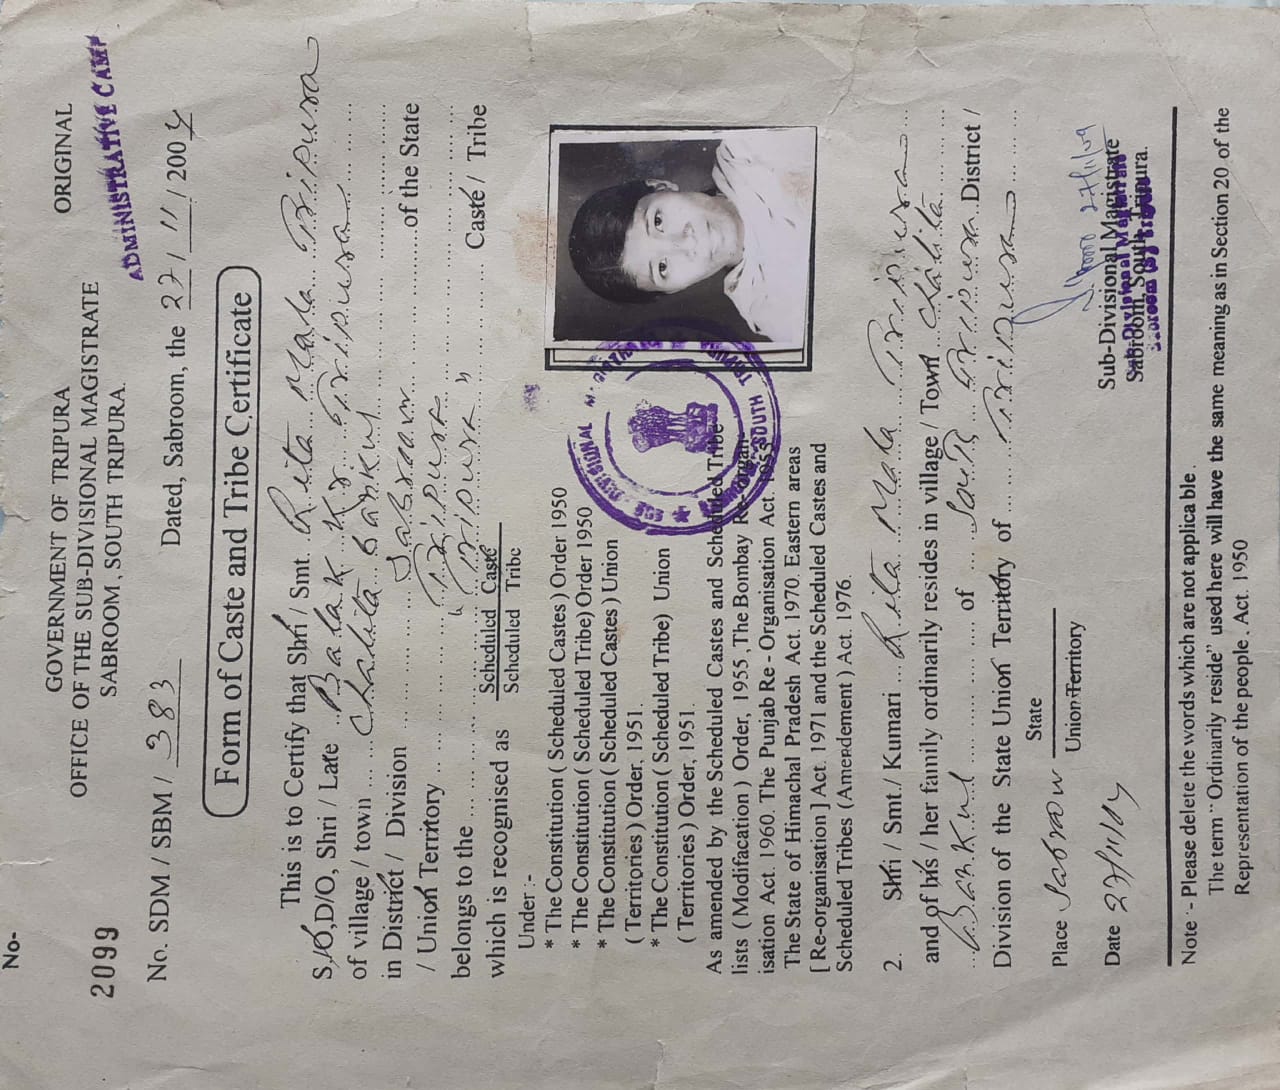 No-
GOVERNMENT OF TRIPURA
ORIGINAL
OFFICE OF THE SUB-DIVISIONAL MAGISTRATE
2099
SABROOM, SOUTH TRIPURA.
ADMINISTRATIVE CAMP
No. SDM / SBM / 383
Dated, Sabroom, the 27 / 11 / 2004
Form of Caste and Tribe Certificate
This is to Certify that Shri / Smt. Rita Mala Tripura
S/O,D/O, Shri / Late Balak Kr Tripura
of village / town Chalita bankul
in District / Division Sabroom of the State
/ Union Territory Tripura
belongs to the "Tripura" Caste / Tribe
which is recognised as Scheduled Caste
Scheduled Tribe
Under :-
* The Constitution ( Scheduled Castes ) Order 1950
* The Constitution ( Scheduled Tribe) Order 1950
* The Constitution ( Scheduled Castes ) Union
( Territories ) Order, 1951.
* The Constitution ( Scheduled Tribe) Union
( Territories ) Order, 1951.
As amended by the Scheduled Castes and Scheduled Tribe
lists ( Modifacation ) Order, 1955 ,The Bombay Re-organ-
isation Act. 1960. The Punjab Re - Organisation Act. 1955
The State of Himachal Pradesh Act. 1970. Eastern areas
[ Re-organisation ] Act. 1971 and the Scheduled Castes and
Scheduled Tribes (Amendement ) Act. 1976.
SUB DIVISIONAL MAGISTRATE
SOUTH TRIPURA
2. Shri / Smt./ Kumari Rita Mala Tripura
and of his / her family ordinarily resides in village / Town Chalita
Bankul of South Tripura District /
Division of the State Union Territory of Tripura
Place Sabroom State
Union Territory
27/11/04
Date 27/11/04
Sub-Divisional Magistrate
Sabroom, South Tripura.
Sub-Divisional Magistrate
Sabroom (S) Tripura
Note :- Please delete the words which are not applica ble .
The term "Ordinarily reside" used here will have the same meaning as in Section 20 of the
Representation of the people . Act. 1950